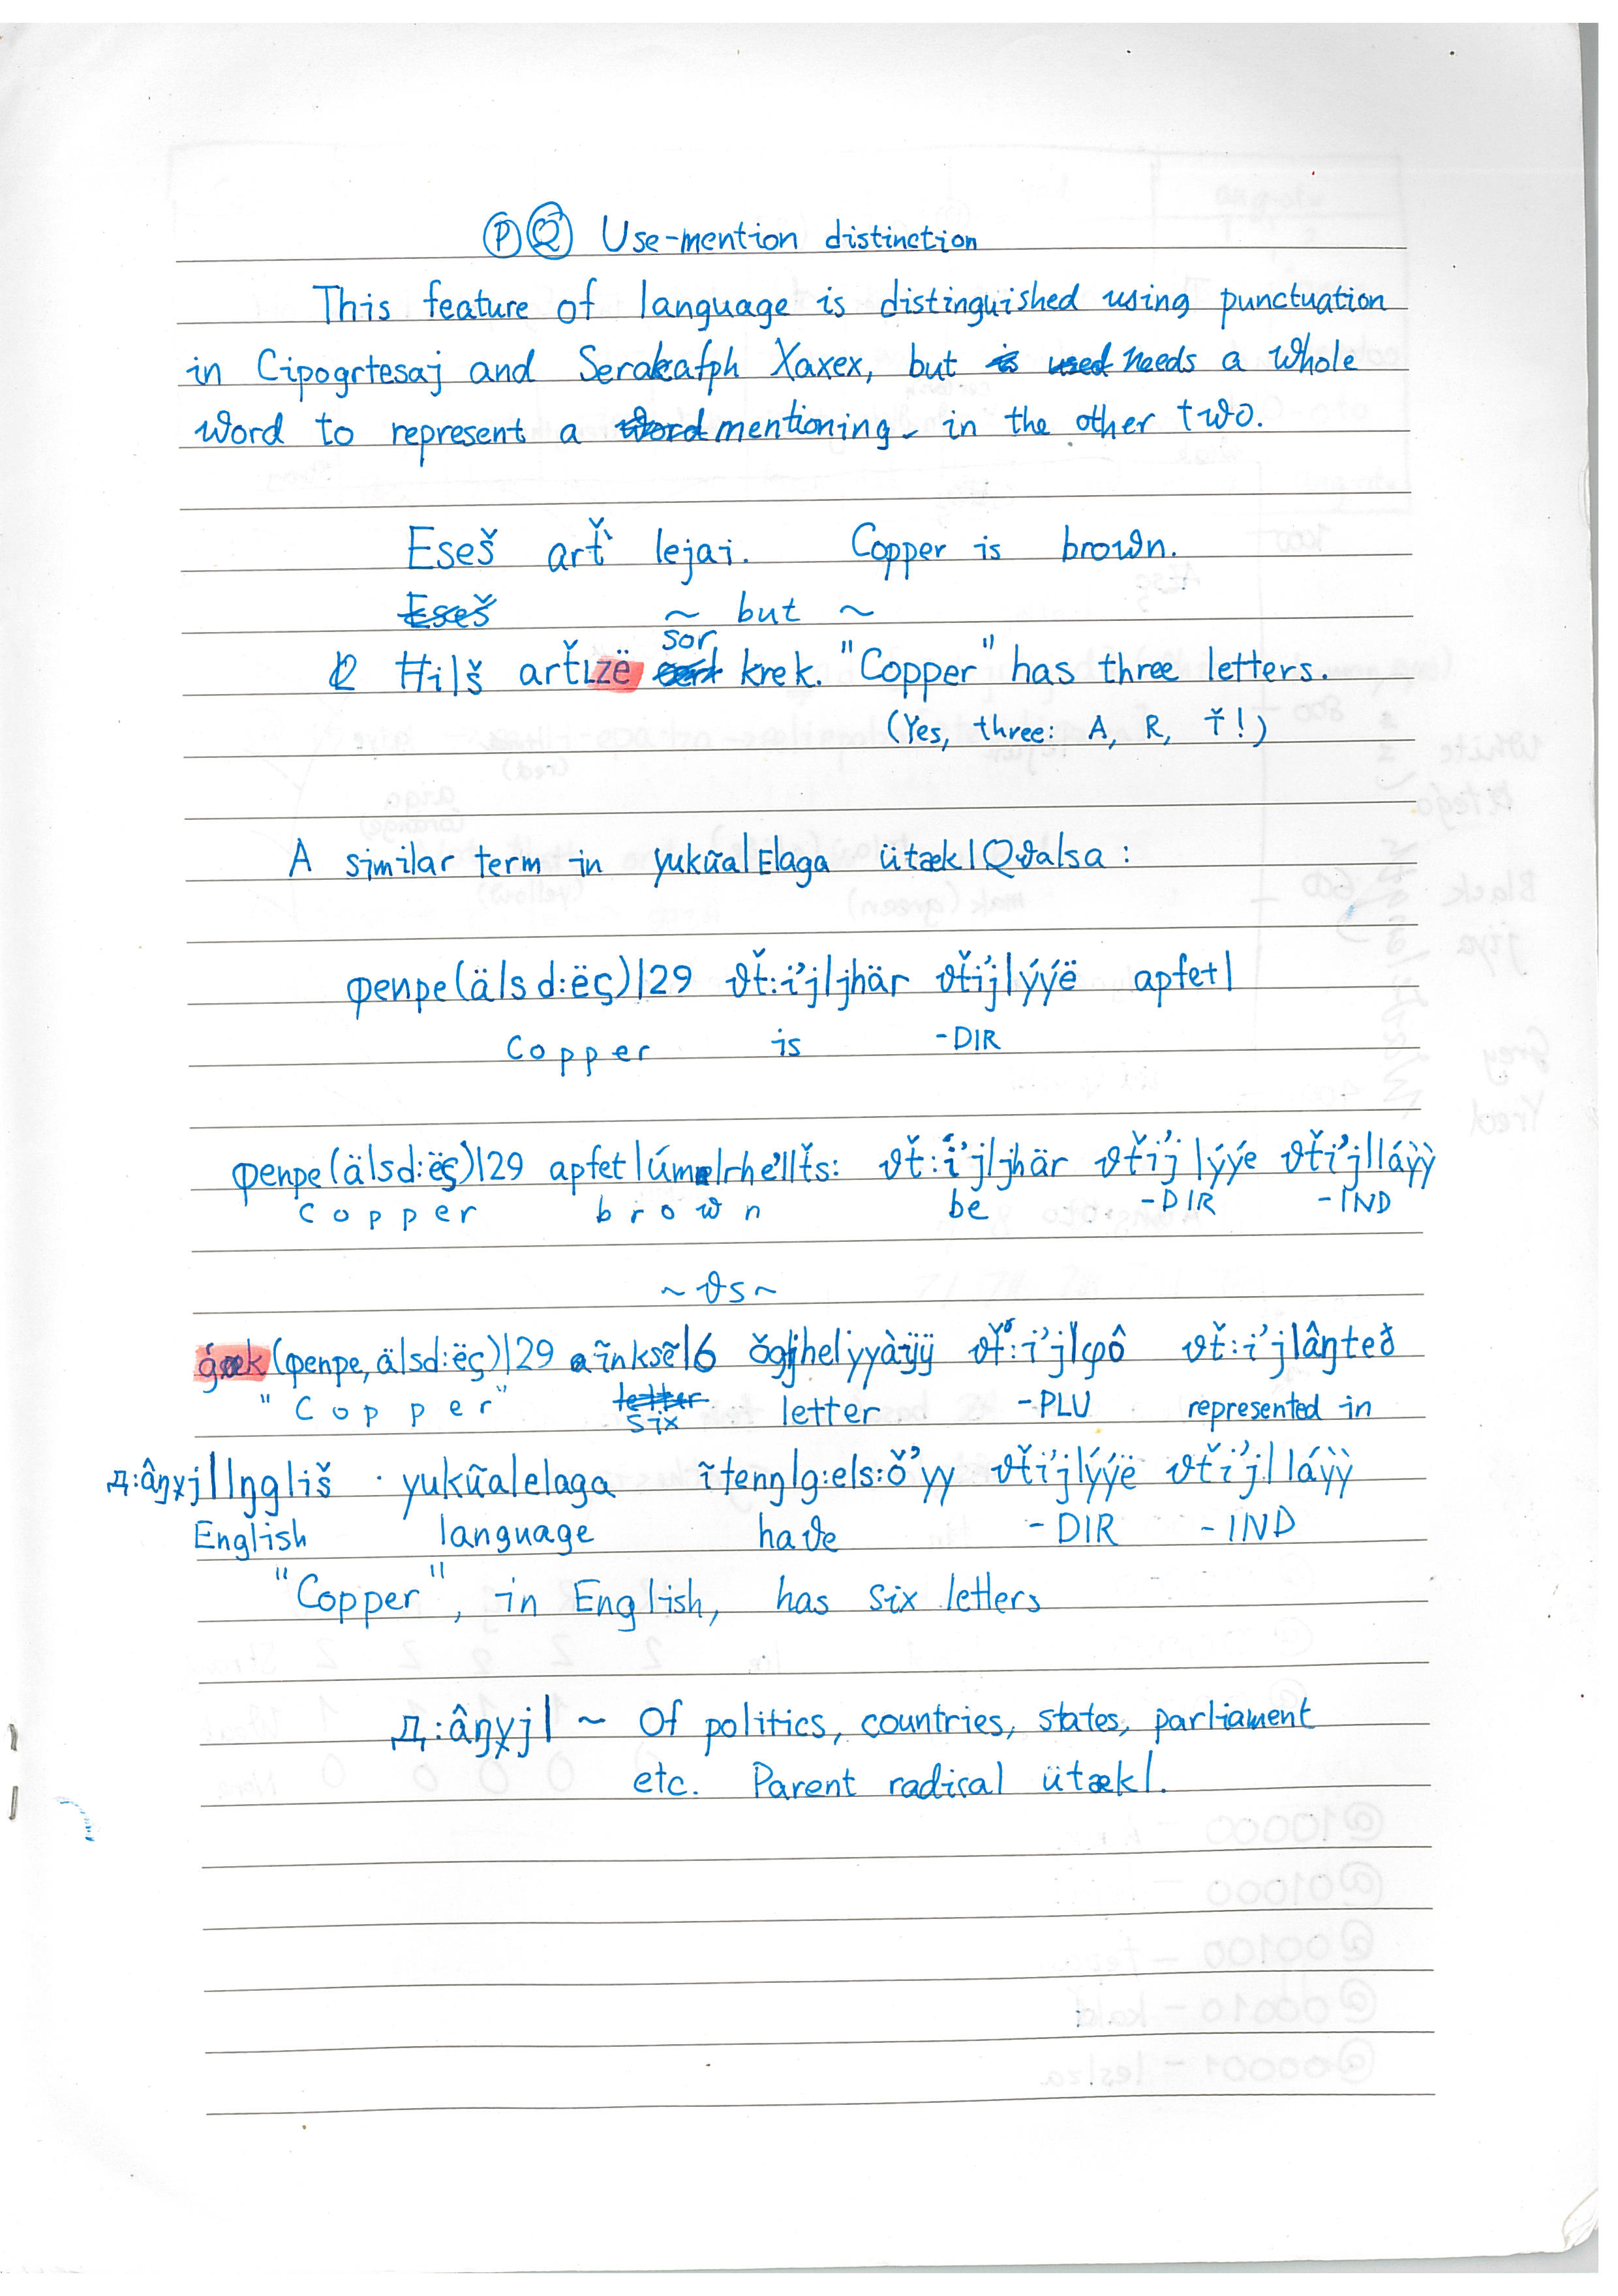 Ⓟ Ⓠ Use-mention distinction
This feature of language is distinguished using punctuation
in Cipogrtesaj and Serakafph Xaxex, but needs a whole
word to represent a mentioning in the other two.
Eseš arť̀ lejai. Copper is brown.
~ but ~
sor
Ħilš arťızë krek. "Copper" has three letters.
(Yes, three: A, R, Ť!)
A similar term in yukũalElaga ütækl Qϑalsa:
φenpe(älsd:ëç)|29 ϑť:i'j|jhär ϑťi'j|ýýë apfetl
Copper is -DIR
φenpe(älsd:ëç)|29 ϑť:i'j|jhär ϑťi'j|ýýe ϑťi'j|láỳỳ
Copper brown be -DIR -IND
~ ϑs ~
(φenpe, älsd:ëç)|29 ϑť:i'j|çφô ϑť:i'j|âŋteð
"Copper" six letter -PLU represented in
д:âŋχj|Iŋgliš · yukũalelaga ϑťi'j|ýýë ϑťi'j|láỳỳ
English language haϑe -DIR -IND
"Copper", in English, has six letters
Д:âŋχj| ~ Of politics, countries, states, parliament
etc. Parent radical ütækl.